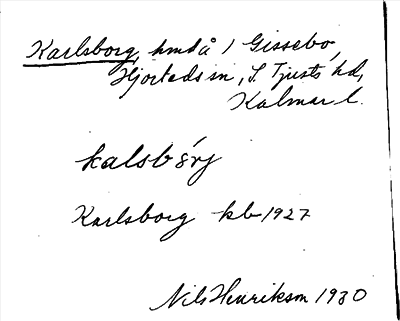 Karlsborg, hmd å / Gissebo,
Hjorteds sn, S. Tjusts hd,
Kalmar l.
kalsbórj
Karlsborg kb 1927
Nils Henriksm 1930